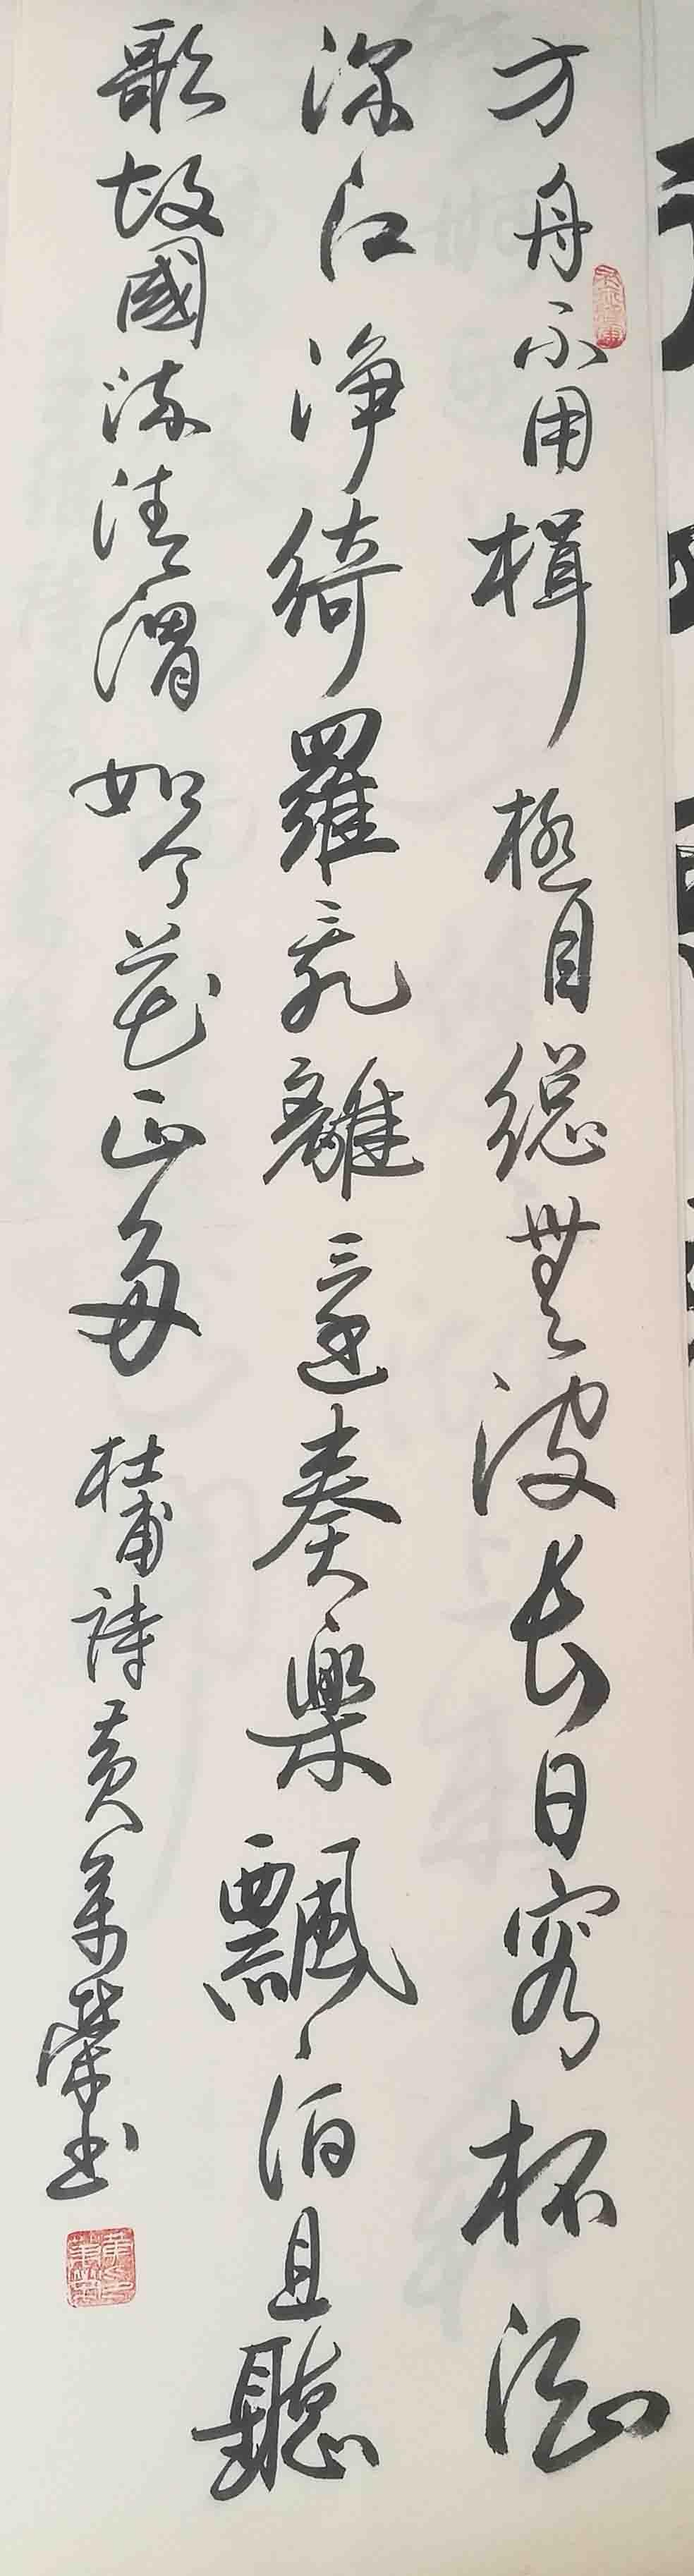 方舟不用楫極目總無波长日容杯酒
深江浄綺羅亂離還奏樂飄泊且聽
歌故國流清渭如今花正多 杜甫詩 黄